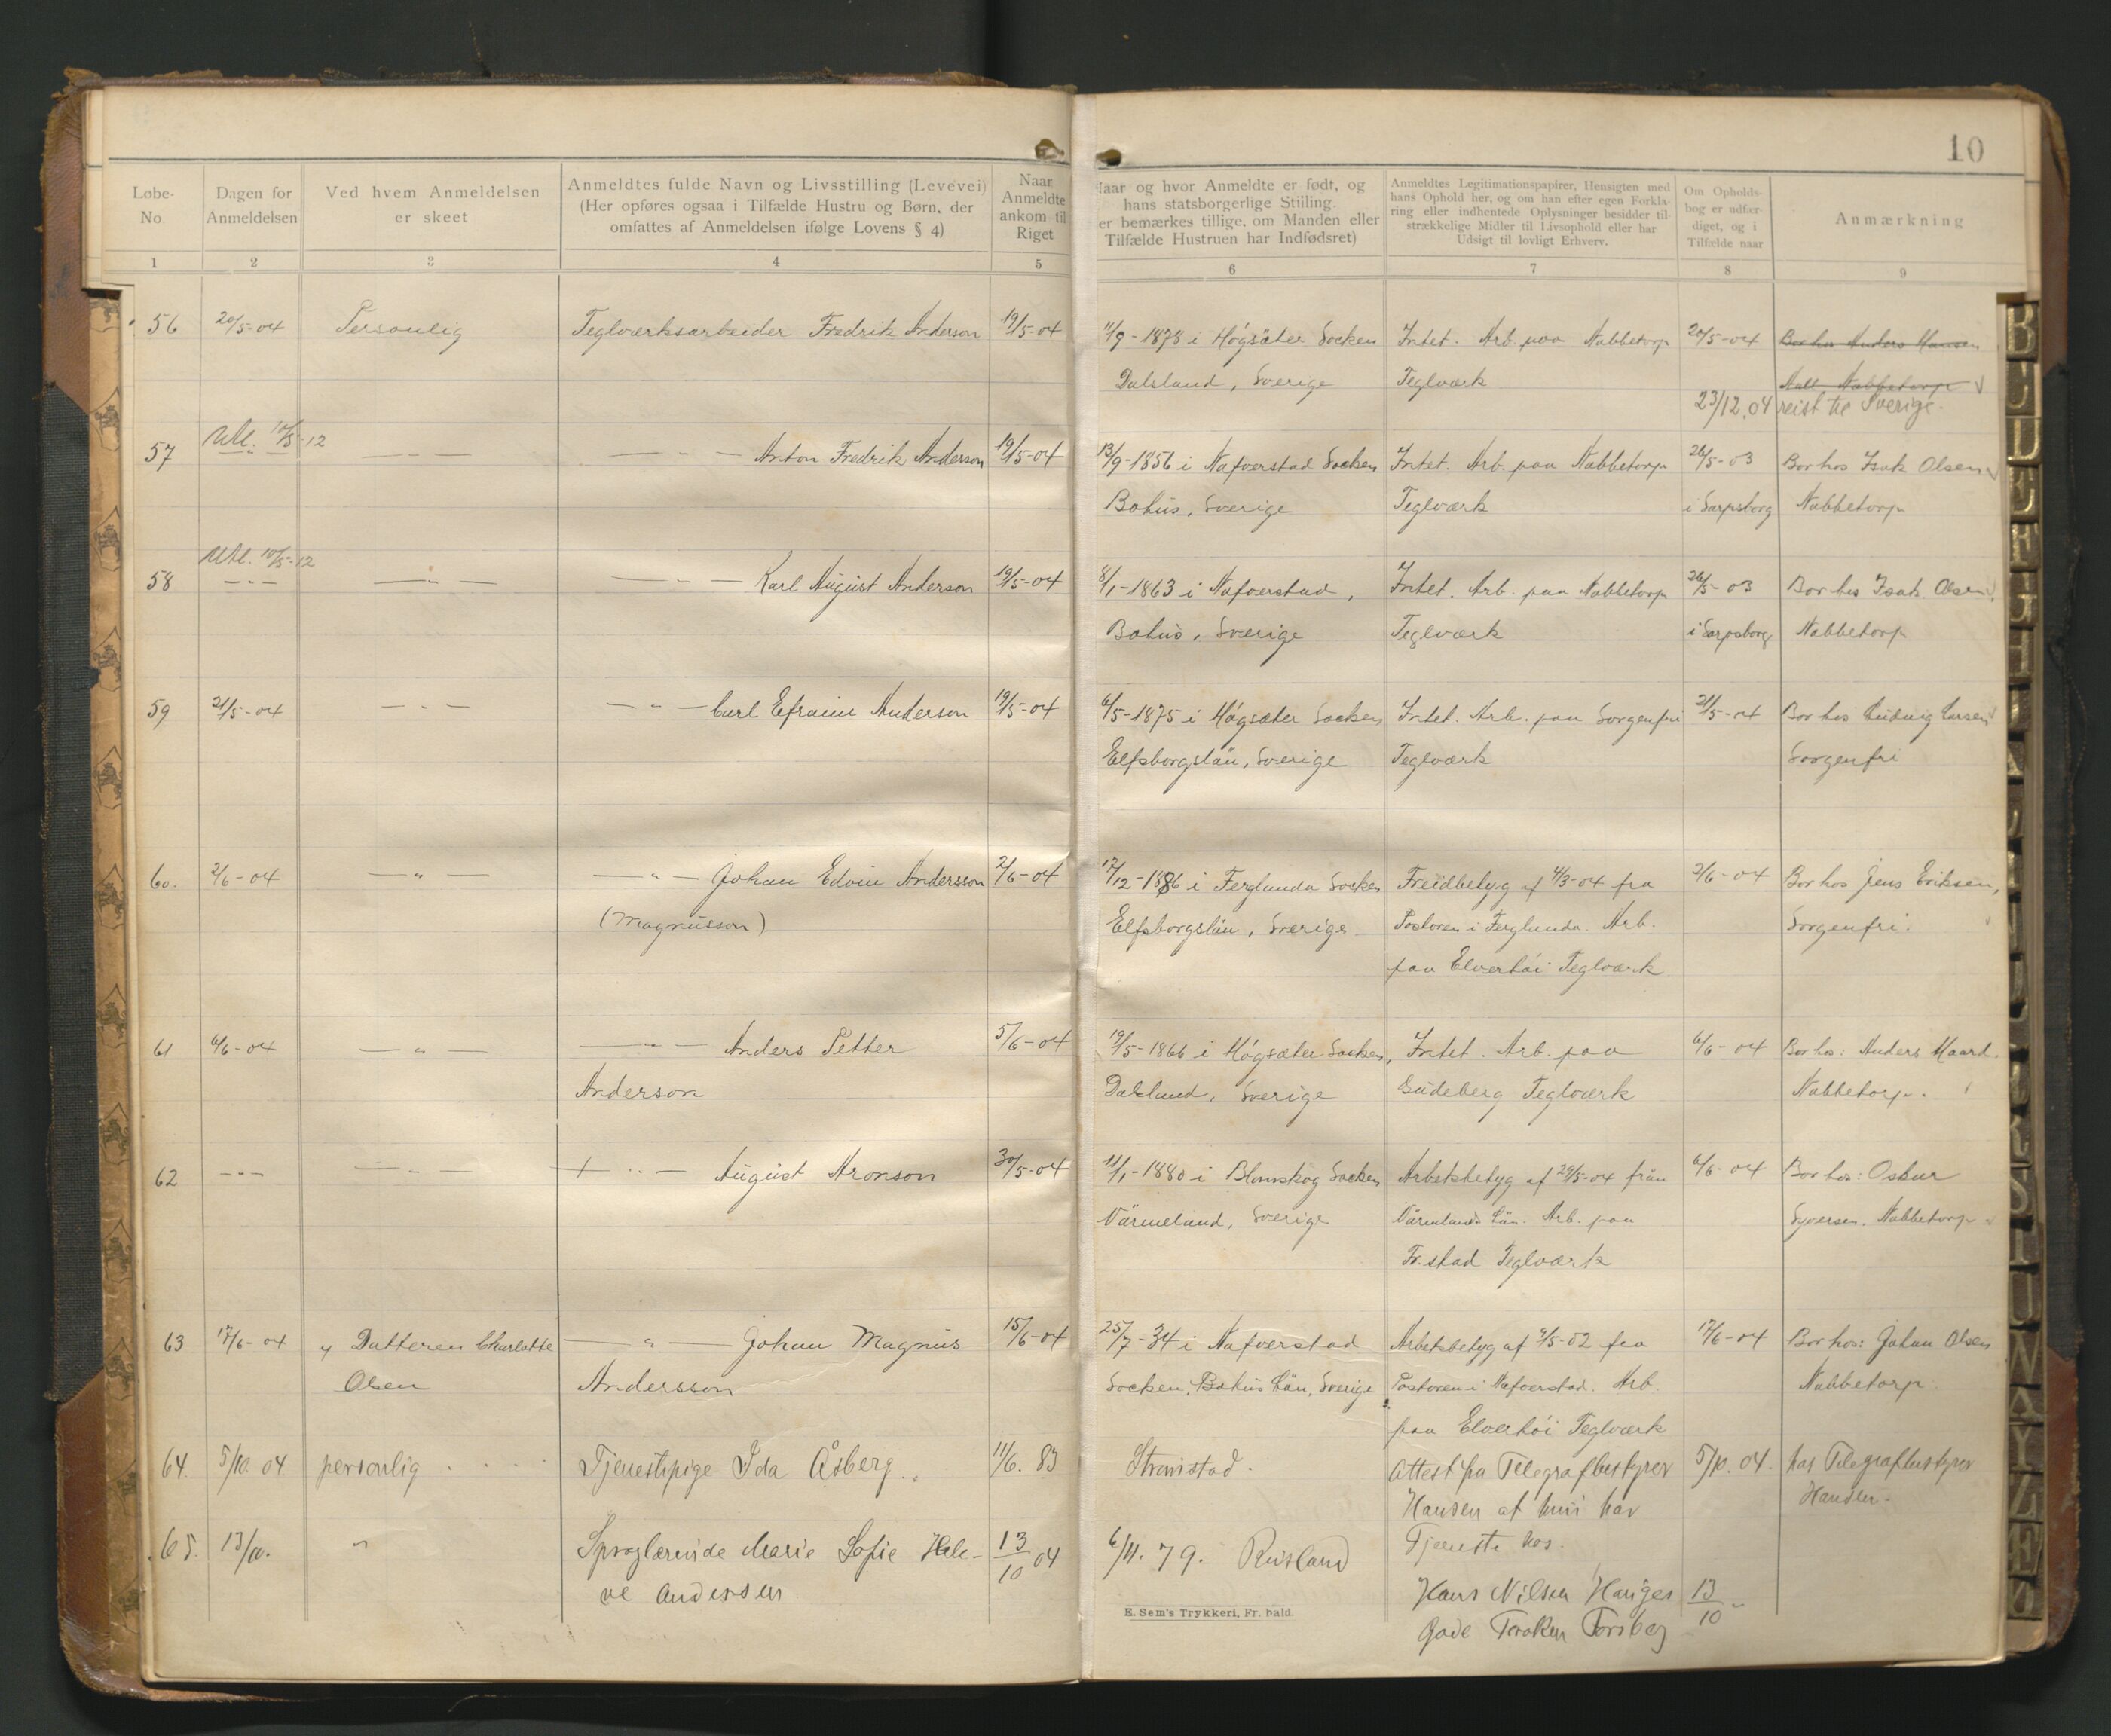 10
Løbe-
No.
Dagen for
Anmeldelsen
Ved hvem Anmeldelsen
er skeet
Anmeldtes fulde Navn og Livsstilling (Levevei)
(Her opføres ogsaa i Tilfælde Hustru og Børn, der
omfattes af Anmeldelsen ifølge Lovens § 4)
Naar
Anmeldte
ankom til
Riget
Naar og hvor Anmeldte er født, og
hans statsborgerlige Stilling
er bemærkes tillige, om Manden eller
Tilfælde Hustruen har Indfødsret)
Anmeldtes Legitimationspapirer, Hensigten med
hans Ophold her, og om han efter egen Forkla-
ring eller indhentede Oplysninger besidder til-
strækkelige Midler til Livsophold eller har
Udsigt til lovligt Erhverv.
Om Opholds-
bog er udfær-
diget, og i
Tilfælde naar
Anmærkning
1 2 3 4 5 6 7 8 9
56 20/5-04 Personlig Teglværksarbeider Fredrik Anderson 19/5-04 11/9-1878 i Høgsäter Socken Intet. Arb. paa Nabbetorp 20/5-04 Bor hos Anders Hansen
Dalsland, Sverige Teglværk Nabbetorp
23/12.04 reist til Sverige.
57 10/5-12 — " — — " — Anton Fredrik Anderson 19/5-04 13/9-1856 i Nafverstad Socken Intet. Arb. paa Nabbetorp 26/5-03 Bor hos Isak Olsen
Bohus, Sverige Teglværk i Sarpsborg Nabbetorp
58 10/5-12 — " — — " — — " — Karl August Anderson 19/5-04 8/1-1863 i Nafverstad, Intet. Arb. paa Nabbetorp 26/5-03 Bor hos Isak Olsen,
Bohus, Sverige Teglværk i Sarpsborg Nabbetorp
59 21/5-04 — " — — " — Carl Efraim Anderson 19/5-04 6/5-1875 i Høgsæter Socken Intet. Arb. paa Sorgenfri 21/5-04 Bor hos Ludvig Larsen
Elfsborgslän, Sverige Teglværk Sorgenfri
60. 2/6-04 — " — — " — Johan Edvin Andersson 2/6-04 17/12-1886 i Ferglanda Socken Freidbetyg af 4/3-04 fra 2/6-04 Bor hos Jens Eriksen,
(Magnusson) Elfsborgslän, Sverige Pastoren i Ferglanda. Arb. Sorgenfri.
paa Elverhøi Teglværk
61 6/6-04 — " — — " — Anders Petter 5/6-04 19/5-1866 i Høgsæter Socken, Intet. Arb. paa 6/6-04 Bor hos: Anders Maard.
Anderson Dalsland, Sverige Gudeberg Teglværk Nabbetorp.
62 — " — — " — + " — August Aronson 30/5-04 11/1-1880 i Blomskog Socken Arbetsbetyg af 29/5-04 från 6/6-04 Bor hos: Oskar
Värmeland, Sverige Värmlands Län. Arb. paa Syversen. Nabbetorp
Fr.stad Teglværk
63 17/6-04 " Datteren Charlotte — " — Johan Magnus 15/6-04 25/7-34 i Nafverstad Arbetsbetyg af 9/5-02 fra 17/6-04 Bor hos: Johan Olsen
Olsen Andersson Socken, Bohus Län, Sverige Pastoren i Nafverstad. Arb. Nabbetorp
paa Elverhøi Teglværk
64. 5/10.04 personlig Tjenestepige Ida Åsberg. 11/6.83 Strømstad. Attest fra Telegrafbestyrer 5/10.04. hos Telegrafbestyrer
Hansen at hun har Hansen
Tjeneste hos.
65. 13/10. " Sproglærerinde Marie Sofie Hele- 13/10 04 6/11.79. Rusland
ne Andersen Hans Nilsen Hauges 13/10 -
Gade
E. Sem's Trykkeri, Fr.hald.
B
D
E
F
G
H